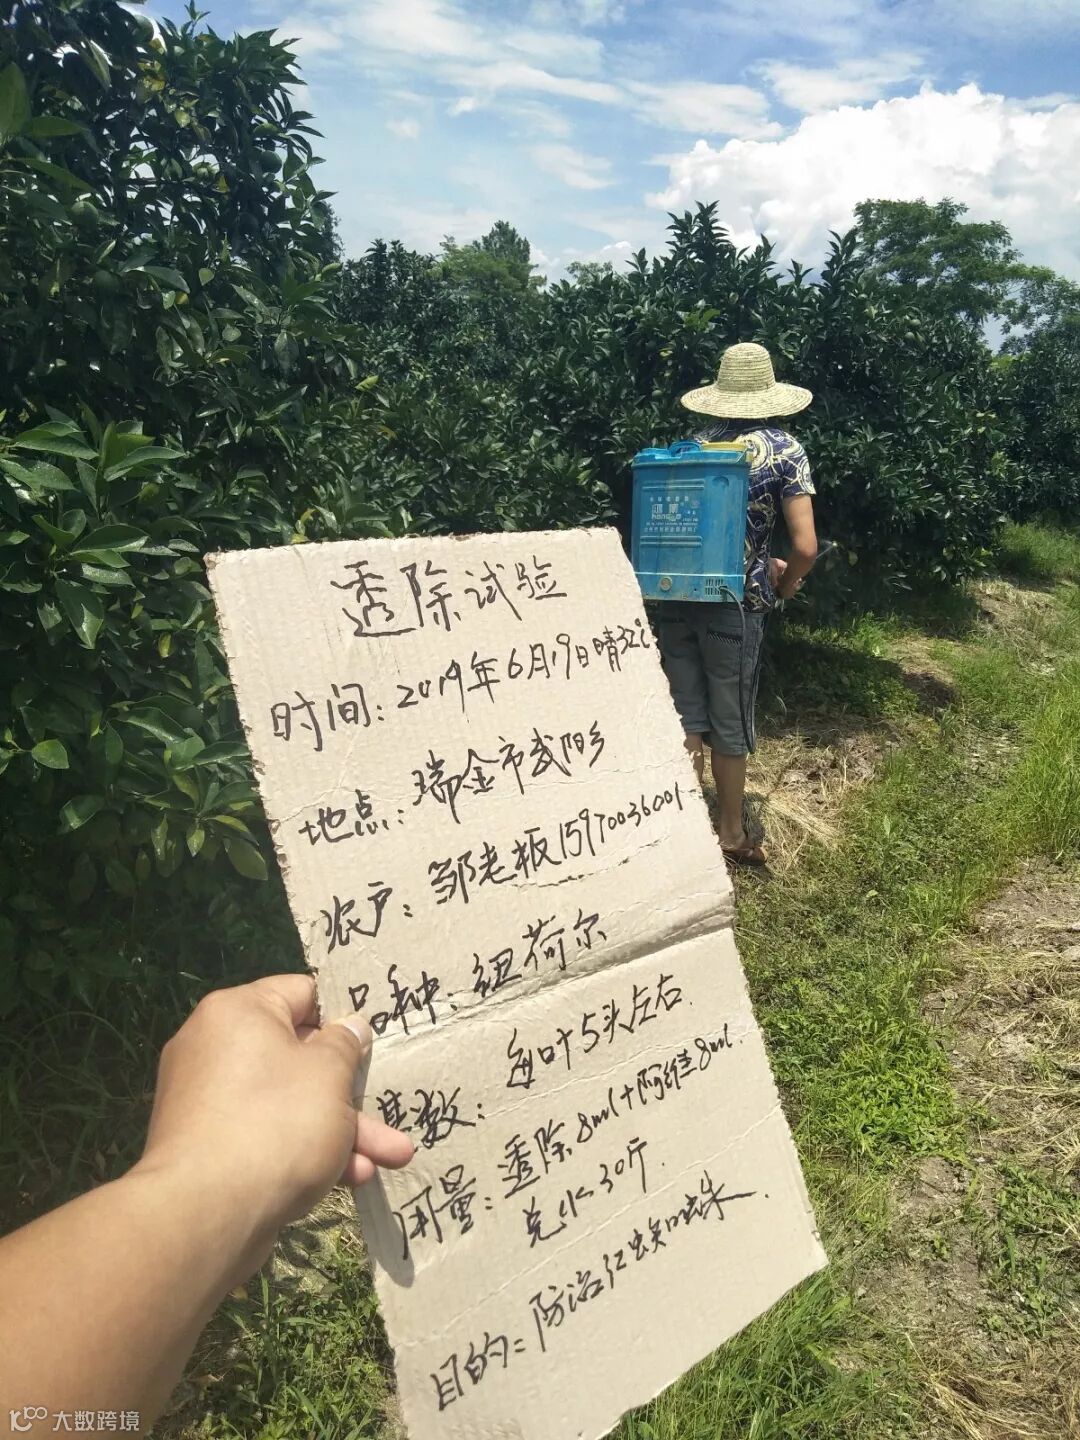 透除试验
时间：2019年6月19日晴32℃
地点：瑞金市武阳乡
农户：邹老板15970036001
品种：纽荷尔
基数：每叶5头左右.
用量：透除8ml+阿维8ml.
兑水30斤.
目的：防治红蜘蛛.
大数跨境